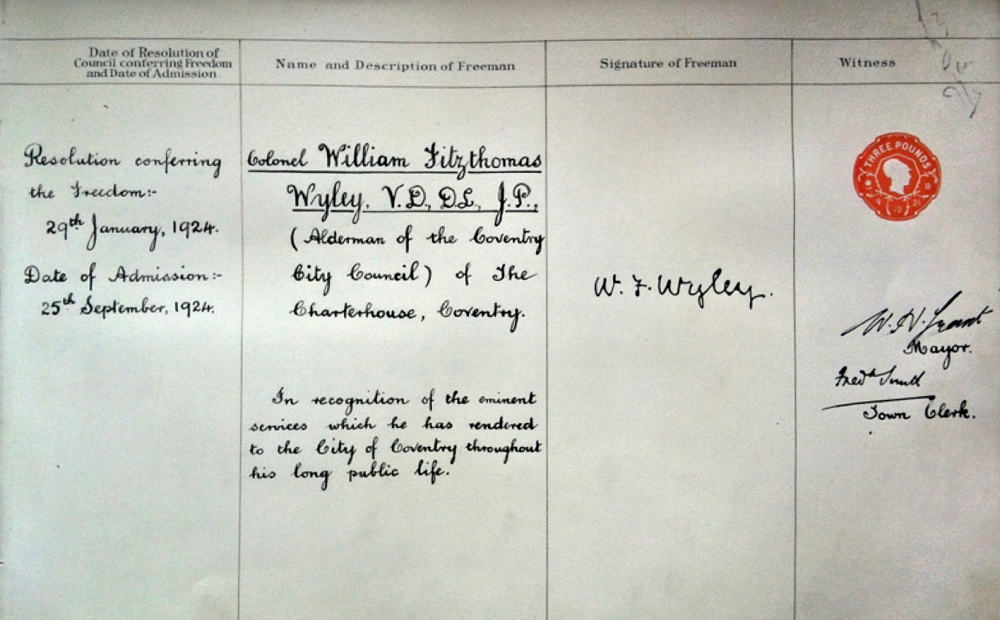 Date of Resolution of
Council conferring Freedom
and Date of Admission.
Name and Description of Freeman
Signature of Freeman
Witness
Resolution conferring
the Freedom:-
29th January, 1924.
Date of Admission:-
25th September, 1924.
Colonel William Fitzthomas
Wyley, V.D., D.L., J.P.,
(Alderman of the Coventry
City Council) of The
Charterhouse, Coventry.
In recognition of the eminent
services which he has rendered
to the City of Coventry throughout
his long public life.
W. F. Wyley.
THREE POUNDS
W. H. Grant
Mayor.
Fredk Smith
Town Clerk.